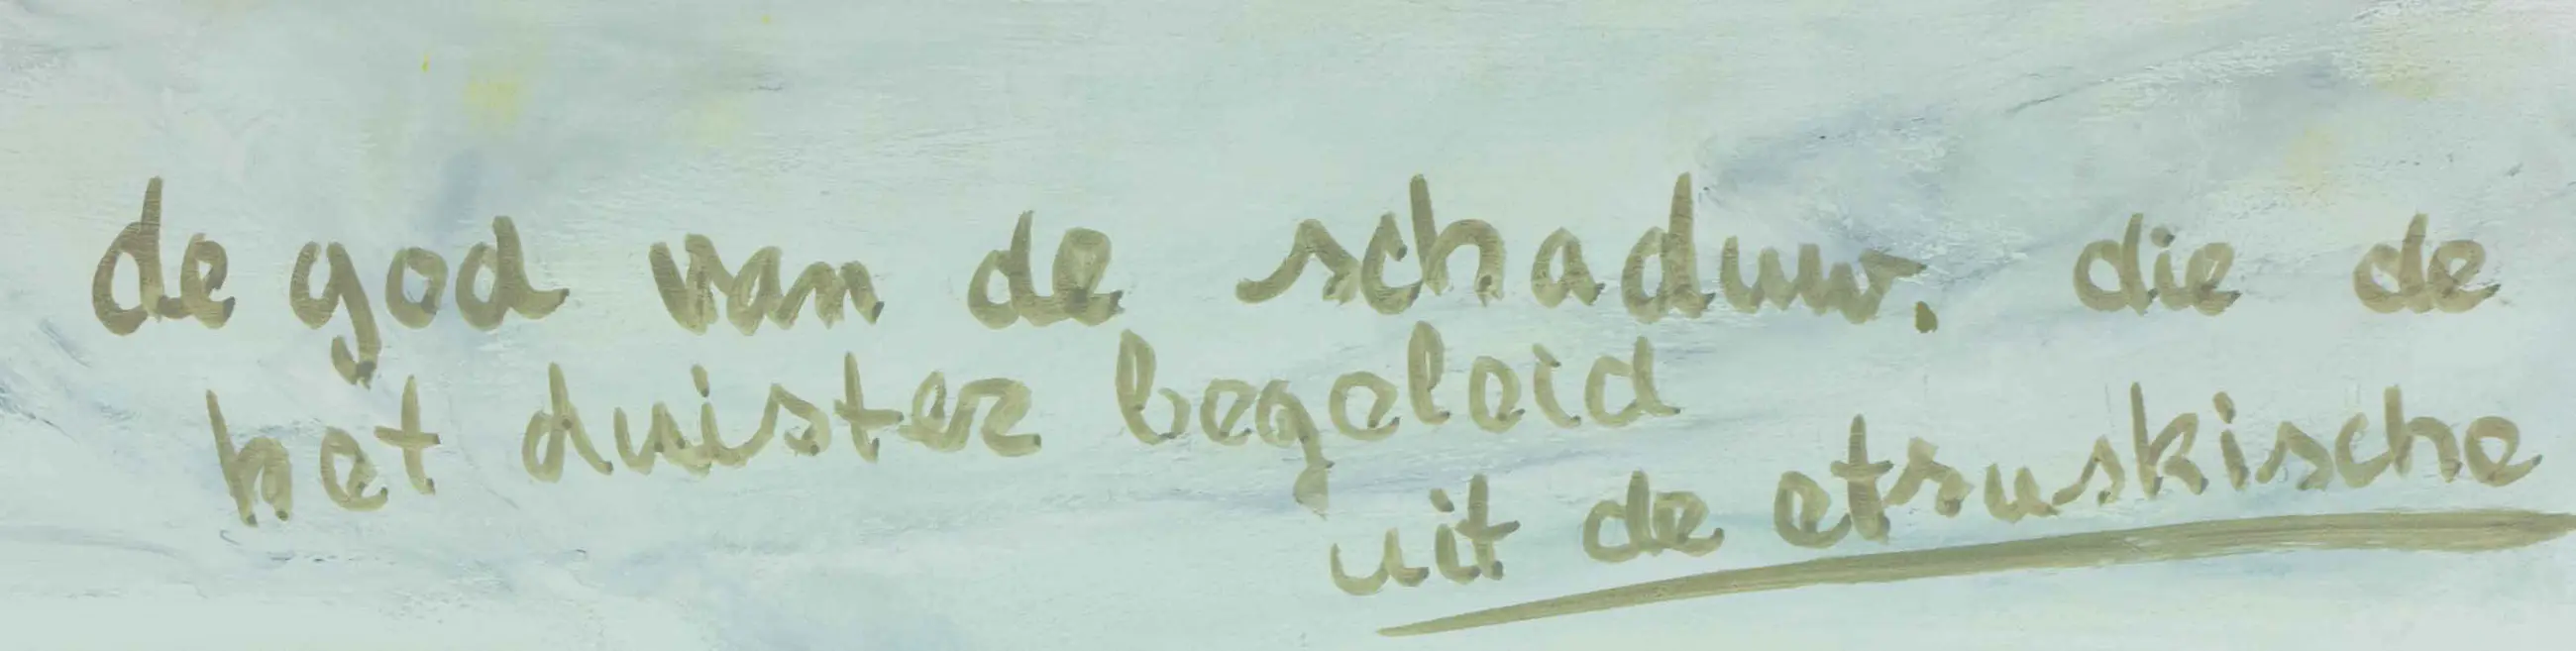 de god van de schaduw. die de
het duister begeleid
uit de etruskische